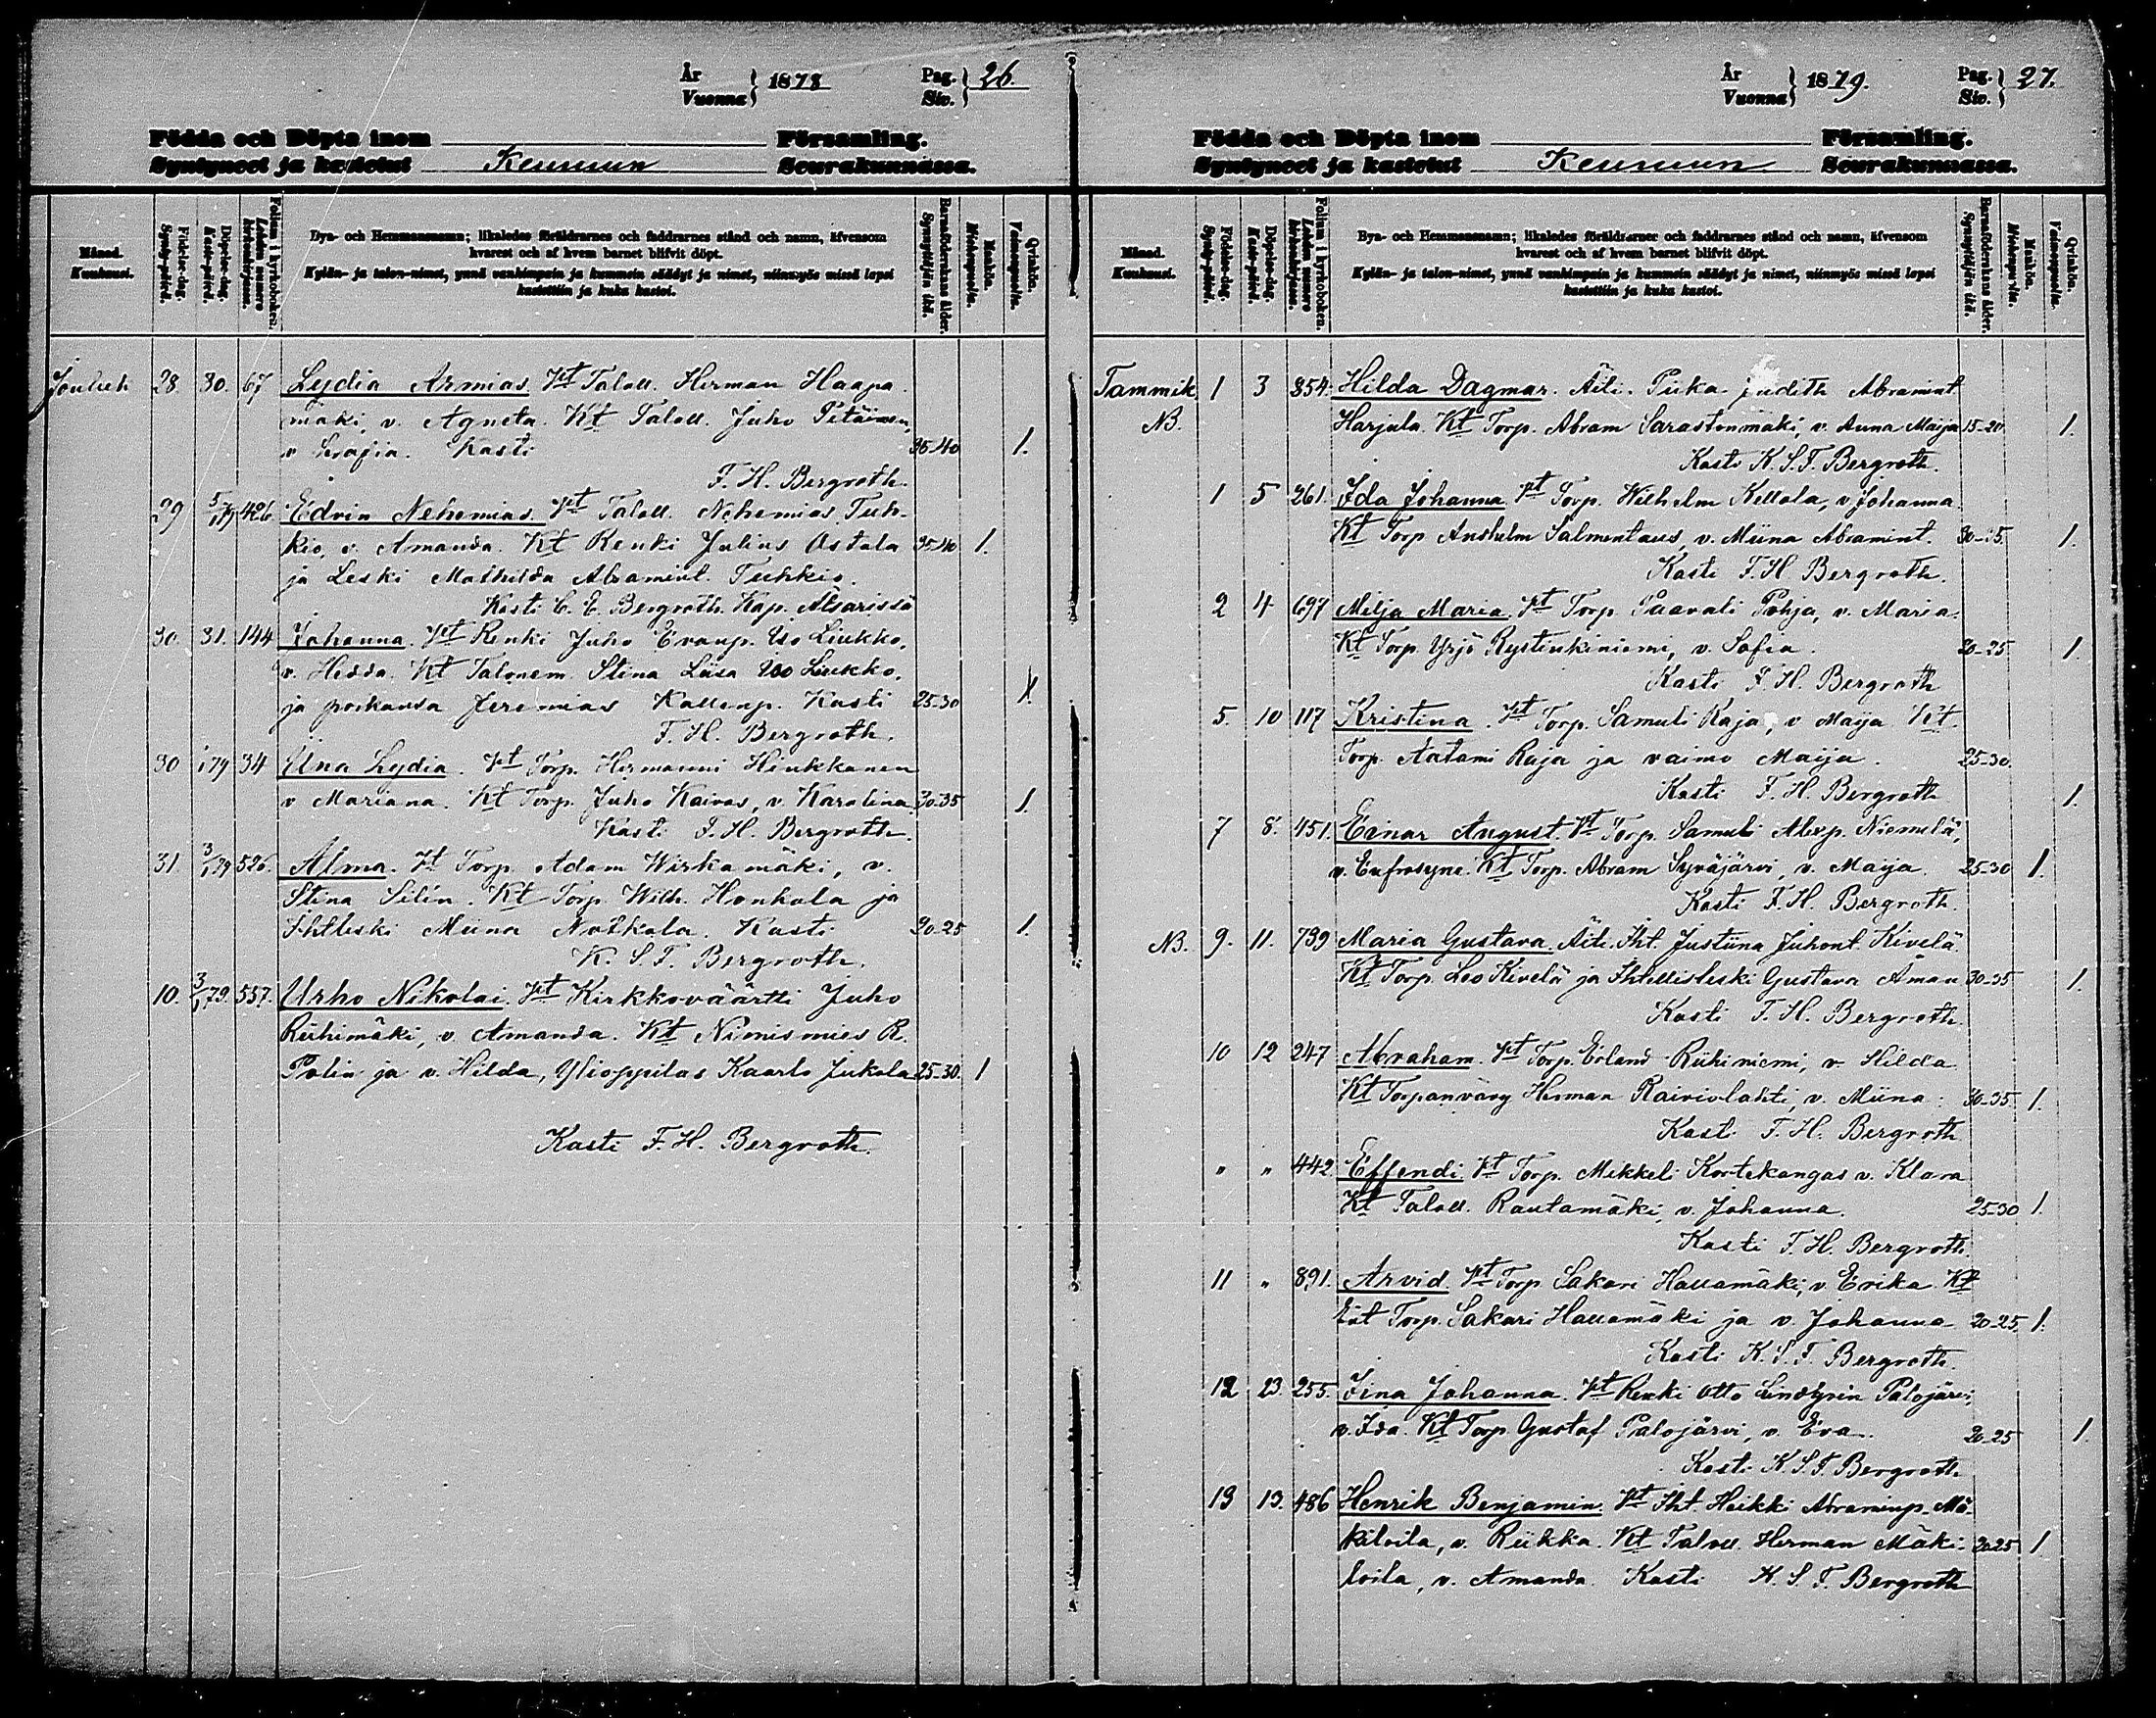 År
Vuonna } 1878
Pag.
Siv. } 26.
Födda och Döpta inom Församling.
Syntyneet ja kastetut Keuruun Seurakunnassa.
Månad.
Kuukausi.
Födelse-dag.
Synty-päivä.
Döpelse-dag.
Kaste-päivä.
Folium i kyrkoboken.
Lehden numero kirkonkirjassa.
Bya- och Hemmansnamn; likaledes föräldrarnes och faddrarnes stånd och namn, äfvensom
hvarest och af hvem barnet blifvit döpt.
Kylän- ja talon-nimet, ynnä vanhimpain ja kummein säädyt ja nimet, niinmyös missä lapsi
kastettiin ja kuka kastoi.
Barnaföderskans ålder.
Synnyttäjän ikä.
Mankön.
Miehenpuolta.
Qvinkön.
Vaimonpuolta.
Jouluk 28. 30. 67 Lydia Armias. Vt Taloll. Herman Haapa
mäki, v. Agneta. Kt Taloll. Juho Petäinen,
v Serafia. Kasti 35-40 1.
F. H. Bergroth.
29 5/1 79 426 Edvin Nehemias. Vt Taloll. Nehemias Tuh-
kio, v. Amanda. Kt Renki Julius Astala 35-40 1.
ja Leski Mathilda Abramint. Tuhkio.
Kasti C. E. Bergroth. Kap. Ätsärissä
30. 31. 144 Johanna. Vt Renki Juho Evanp. Iso Liukko,
v. Hedda. Kt Talonem. Stina Liisa Iso Liukko,
ja poikansa Jeremias Kallenp. Kasti 25-30 1.
F. H. Bergroth.
30 1/1 79 34 Eina Lydia. Vt Torp. Hermanni Hiukkanen
v Mariana. Kt Torp. Juho Kaivos, v. Karolina 30-35 1.
Kasti F. H. Bergroth.
31. 3/1 79 526. Alma. Vt Torp. Adam Wirkamäki, v.
Stina Silin. Kt Torp Wilh. Honkola ja
Ihtleski Miina Notkola. Kasti 20-25 1.
K. S. F. Bergroth.
10. 3/1 79. 557. Urho Nikolai. Vt Kirkkoväärtti Juho
Riihimäki, v Amanda. Kt Nimismies R.
Polin ja v. Hilda, Ylioppilas Kaarlo Jukola 25-30. 1
Kasti F. H. Bergroth.
År
Vuonna } 1879.
Pag.
Siv. } 27.
Födda och Döpta inom Församling.
Syntyneet ja kastetut Keuruun Seurakunnassa.
Månad.
Kuukausi.
Födelse-dag.
Synty-päivä.
Döpelse-dag.
Kaste-päivä.
Folium i kyrkoboken.
Lehden numero kirkonkirjassa.
Bya- och Hemmansnamn; likaledes föräldrarnes och faddrarnes stånd och namn, äfvensom
hvarest och af hvem barnet blifvit döpt.
Kylän- ja talon-nimet, ynnä vanhimpain ja kummein säädyt ja nimet, niinmyös missä lapsi
kastettiin ja kuka kastoi.
Barnaföderskans ålder.
Synnyttäjän ikä.
Mankön.
Miehenpuolta.
Qvinkön.
Vaimonpuolta.
Tammik. 1 3 854. Hilda Dagmar. Äiti. Piika Judith Abramint
NB. Harjula. Kt Torp. Abram Sarastonmäki, v. Anna Maija 15-20 1.
Kasti K. S. F. Bergroth.
1 5 261. Ida Johanna Vt Torp. Wilhelm Kellola, v. Johanna.
Kt Torp Anshelm Salmentaus, v. Miina Abramint. 30-35. 1.
Kasti F. H Bergroth.
2 4 697 Milja Maria. Vt Torp Paavali Pohja, v. Maria.
Kt Torp Yrjö Rystinkiniemi, v. Sofia. 20-25 1.
Kasti F. H. Bergroth
5. 10 117 Kristina. Vt Torp. Samuli Raja, v Maija Kt
Torp. Aatami Raja ja vaimo Maija. 25-30
Kasti F. H. Bergroth 1.
7 8. 451. Einar August. Vt Torp. Samuli Alexp. Niemelä,
v. Eufrosyne. Kt Torp. Abram Syväjärvi, v. Maija. 25-30 1.
Kasti F. H. Bergroth.
NB. 9. 11. 739 Maria Gustava. Äiti. Iht. Justiina Juhont. Kivelä.
Kt Torp. Leo Kivelä ja Ihtellisleski Gustava Åman 30-35 1.
Kasti F. H. Bergroth.
10 12 247 Abraham. Vt Torp. Erland Riihiniemi, v. Hilda
Kt Torpanvävy Herman Raiviolahti, v. Miina. 30-35. 1.
Kasti F. H. Bergroth
" " 442 Effendi. Vt Torp. Mikkeli Kortekangas v. Klara
Kt Taloll. Rautamäki, v. Johanna. 25-30 1.
Kasti F. H. Bergroth.
11 " 891. Arvid. Vt Torp. Sakari Hallamäki, v Erika. Kt
Ent Torp. Sakari Hallamäki ja v. Johanna 20-25. 1.
Kasti K. S. F. Bergroth.
12 23. 255. Fina Johanna. Vt Renki Otto Lindgrin Palojärvi,
v. Ida. Kt Torp. Gustaf Palojärvi, v. Eva. 20-25 1.
Kasti K. S. F. Bergroth
13 13. 486 Henrik Benjamin. Vt Iht. Heikki Abraminp. Mä-
kiloila, v. Riikka. Kt Taloll. Herman Mäki- 20-25 1
loila, v. Amanda. Kasti K. S. F. Bergroth